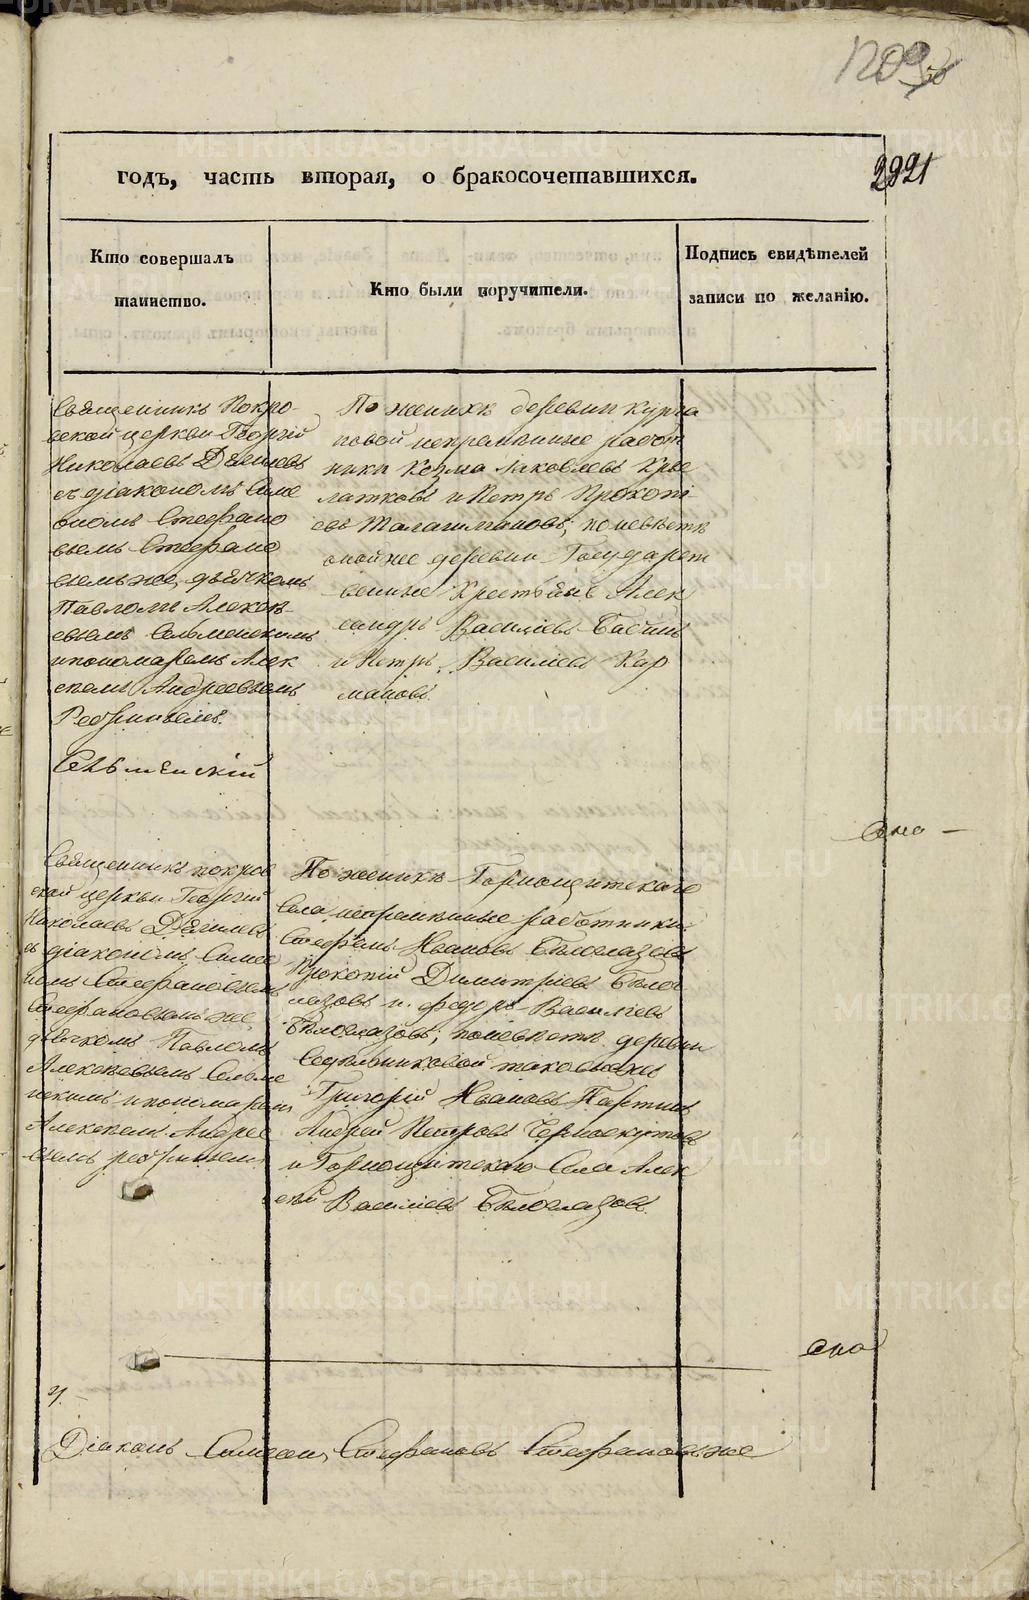 1209
2921
годъ, часть вторая, о бракосочетавшихся.
Кто совершалъ
таинство.
Кто были поручители.
Подпись свидѣтелей
записи по желанію.
Священникъ Покро-
вской церкви Георгій
Николаевъ Дягилевъ
съ діакономъ Симе
ономъ Стефано
вымъ Стефано
вымъ же, дьячкомъ
Павломъ Алексѣ-
евымъ Сельменскимъ
и пономаремъ Алек
сѣемъ Андреевымъ
Сельменскій
По женихѣ деревни Курга
новой непремѣнные работ
ники Козма Іаковлевъ Кры
латковъ и Петръ Прокопі
евъ Талашмановъ; по невѣстѣ
оной же деревни Государст
венные Крестьяне Алек
сандръ Василіевъ Бабинъ
и Петръ Василіевъ Кар
мановъ.
Священникъ покров
ской церкви Георгій
Николаевъ Дягилевъ
съ діакономъ Симе
ономъ Стефановымъ
Стефановымъ же,
дьячкомъ Павломъ
Алексѣевымъ Сельме
нскимъ и пономаремъ
Алексѣемъ Андрее
вымъ
По женихѣ Горнощитскаго
Села непремѣнные работники
Стефанъ Ивановъ Бѣлоглазовъ
Прокопій Димитріевъ Бѣлог
лазовъ и Федоръ Василіевъ
Бѣлоглазовъ; по невѣстѣ деревни
таковыежъ
Григорій Ивановъ
Андрей Петровъ Черноскутовъ
и Горнощитскаго Села Алек
сѣй Василіевъ Бѣлоглазовъ.
Діаконъ Симеонъ Стефановъ Стефановъ же
METRIKI.GASO-URAL.RU